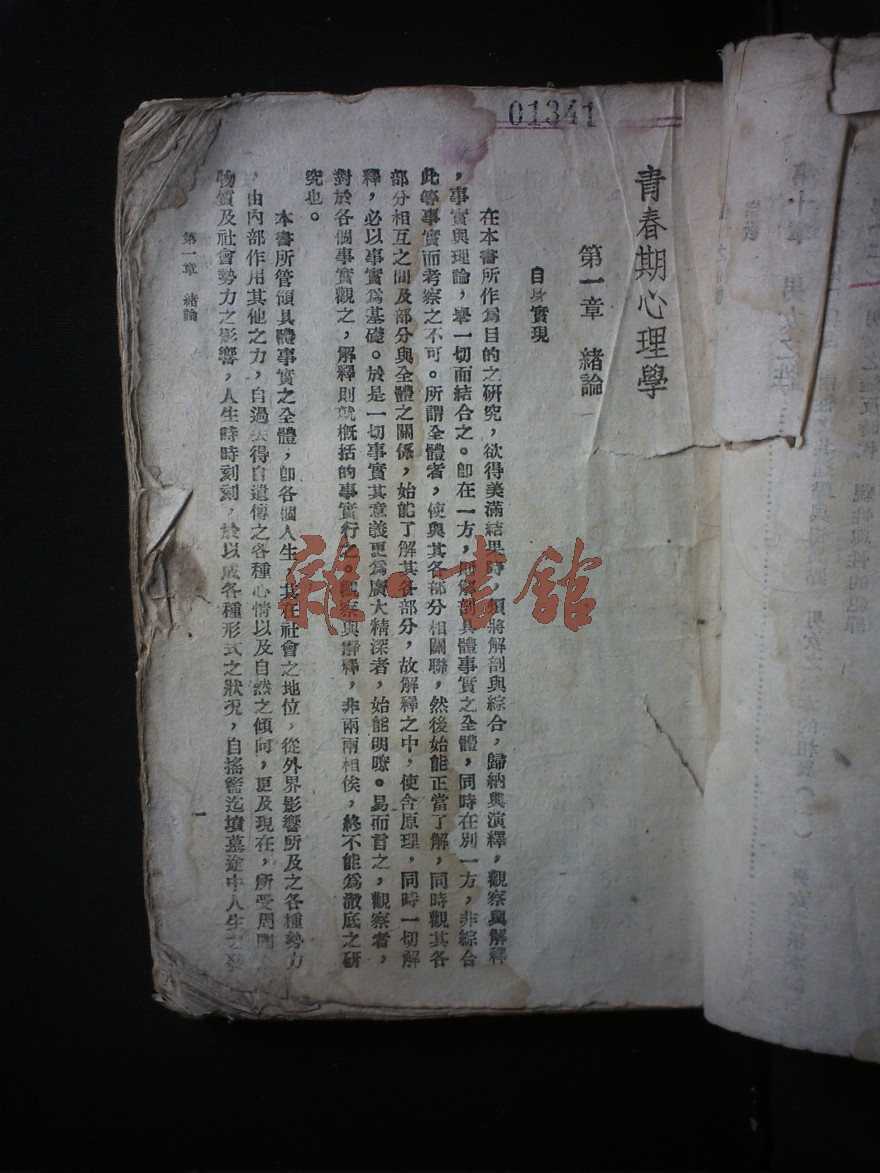 01341
青春期心理學
第一章 緒論
自身實現
在本書所作爲目的之研究，欲得美滿結果時，須將解剖與綜合，歸納與演釋，觀察與解釋
，事實與理論，舉一切而結合之。卽在一方，則解剖具體事實之全體，同時在別一方，非綜合
此等事實而考察之不可。所謂全體者，使與其各部分相關聯，然後始能正當了解，同時觀其各
部分相互之間及部分與全體之關係，始能了解其各部分，故解釋之中，使含原理，同時一切解
釋，必以事實爲基礎。於是一切事實其意義更爲廣大精深者，始能明瞭。易而言之，觀察者，
對於各個事實觀之，解釋則就槪括的事實行之。觀察與解釋，非兩兩相俟，終不能爲澈底之研
究也。
本書所管領具體事實之全體，卽各個人生，其在社會之地位，從外界影響所及之各種勢力
，由內部作用其他之力，自過去得自遺傳之各種心情以及自然之傾向，更及現在，所受周圍
物質及社會勢力之影響，人生時時刻刻，於以成各種形式之狀況，自搖籃迄墳墓途中人生之
第一章 緒論
一
雜·書館